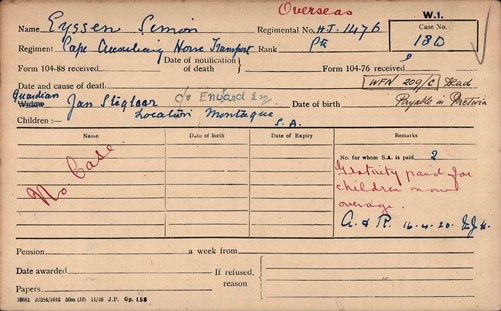 Overseas
W.1.
Name Eyssen Simon Regimental No. HT. 1476
Case No.
13D
Regiment Cape Auxiliary Horse Transport Rank Pte
Form 104-88 received Date of notification of death Form 104-76 received
Date and cause of death WFN 209/C Dead
Guardian
Widow Jan Stigloar c/o Date of birth Payable in Pretoria
Location Montague
Children:— S.A.
Name Date of birth Date of Expiry Remarks
No Case
No. for whom S.A. is paid 2
Gratuity paid for
children now
overage.
A. & R. 16.4.20.
Pension a week from
Date awarded If refused,
reason
Papers
J.P. Gp. 158